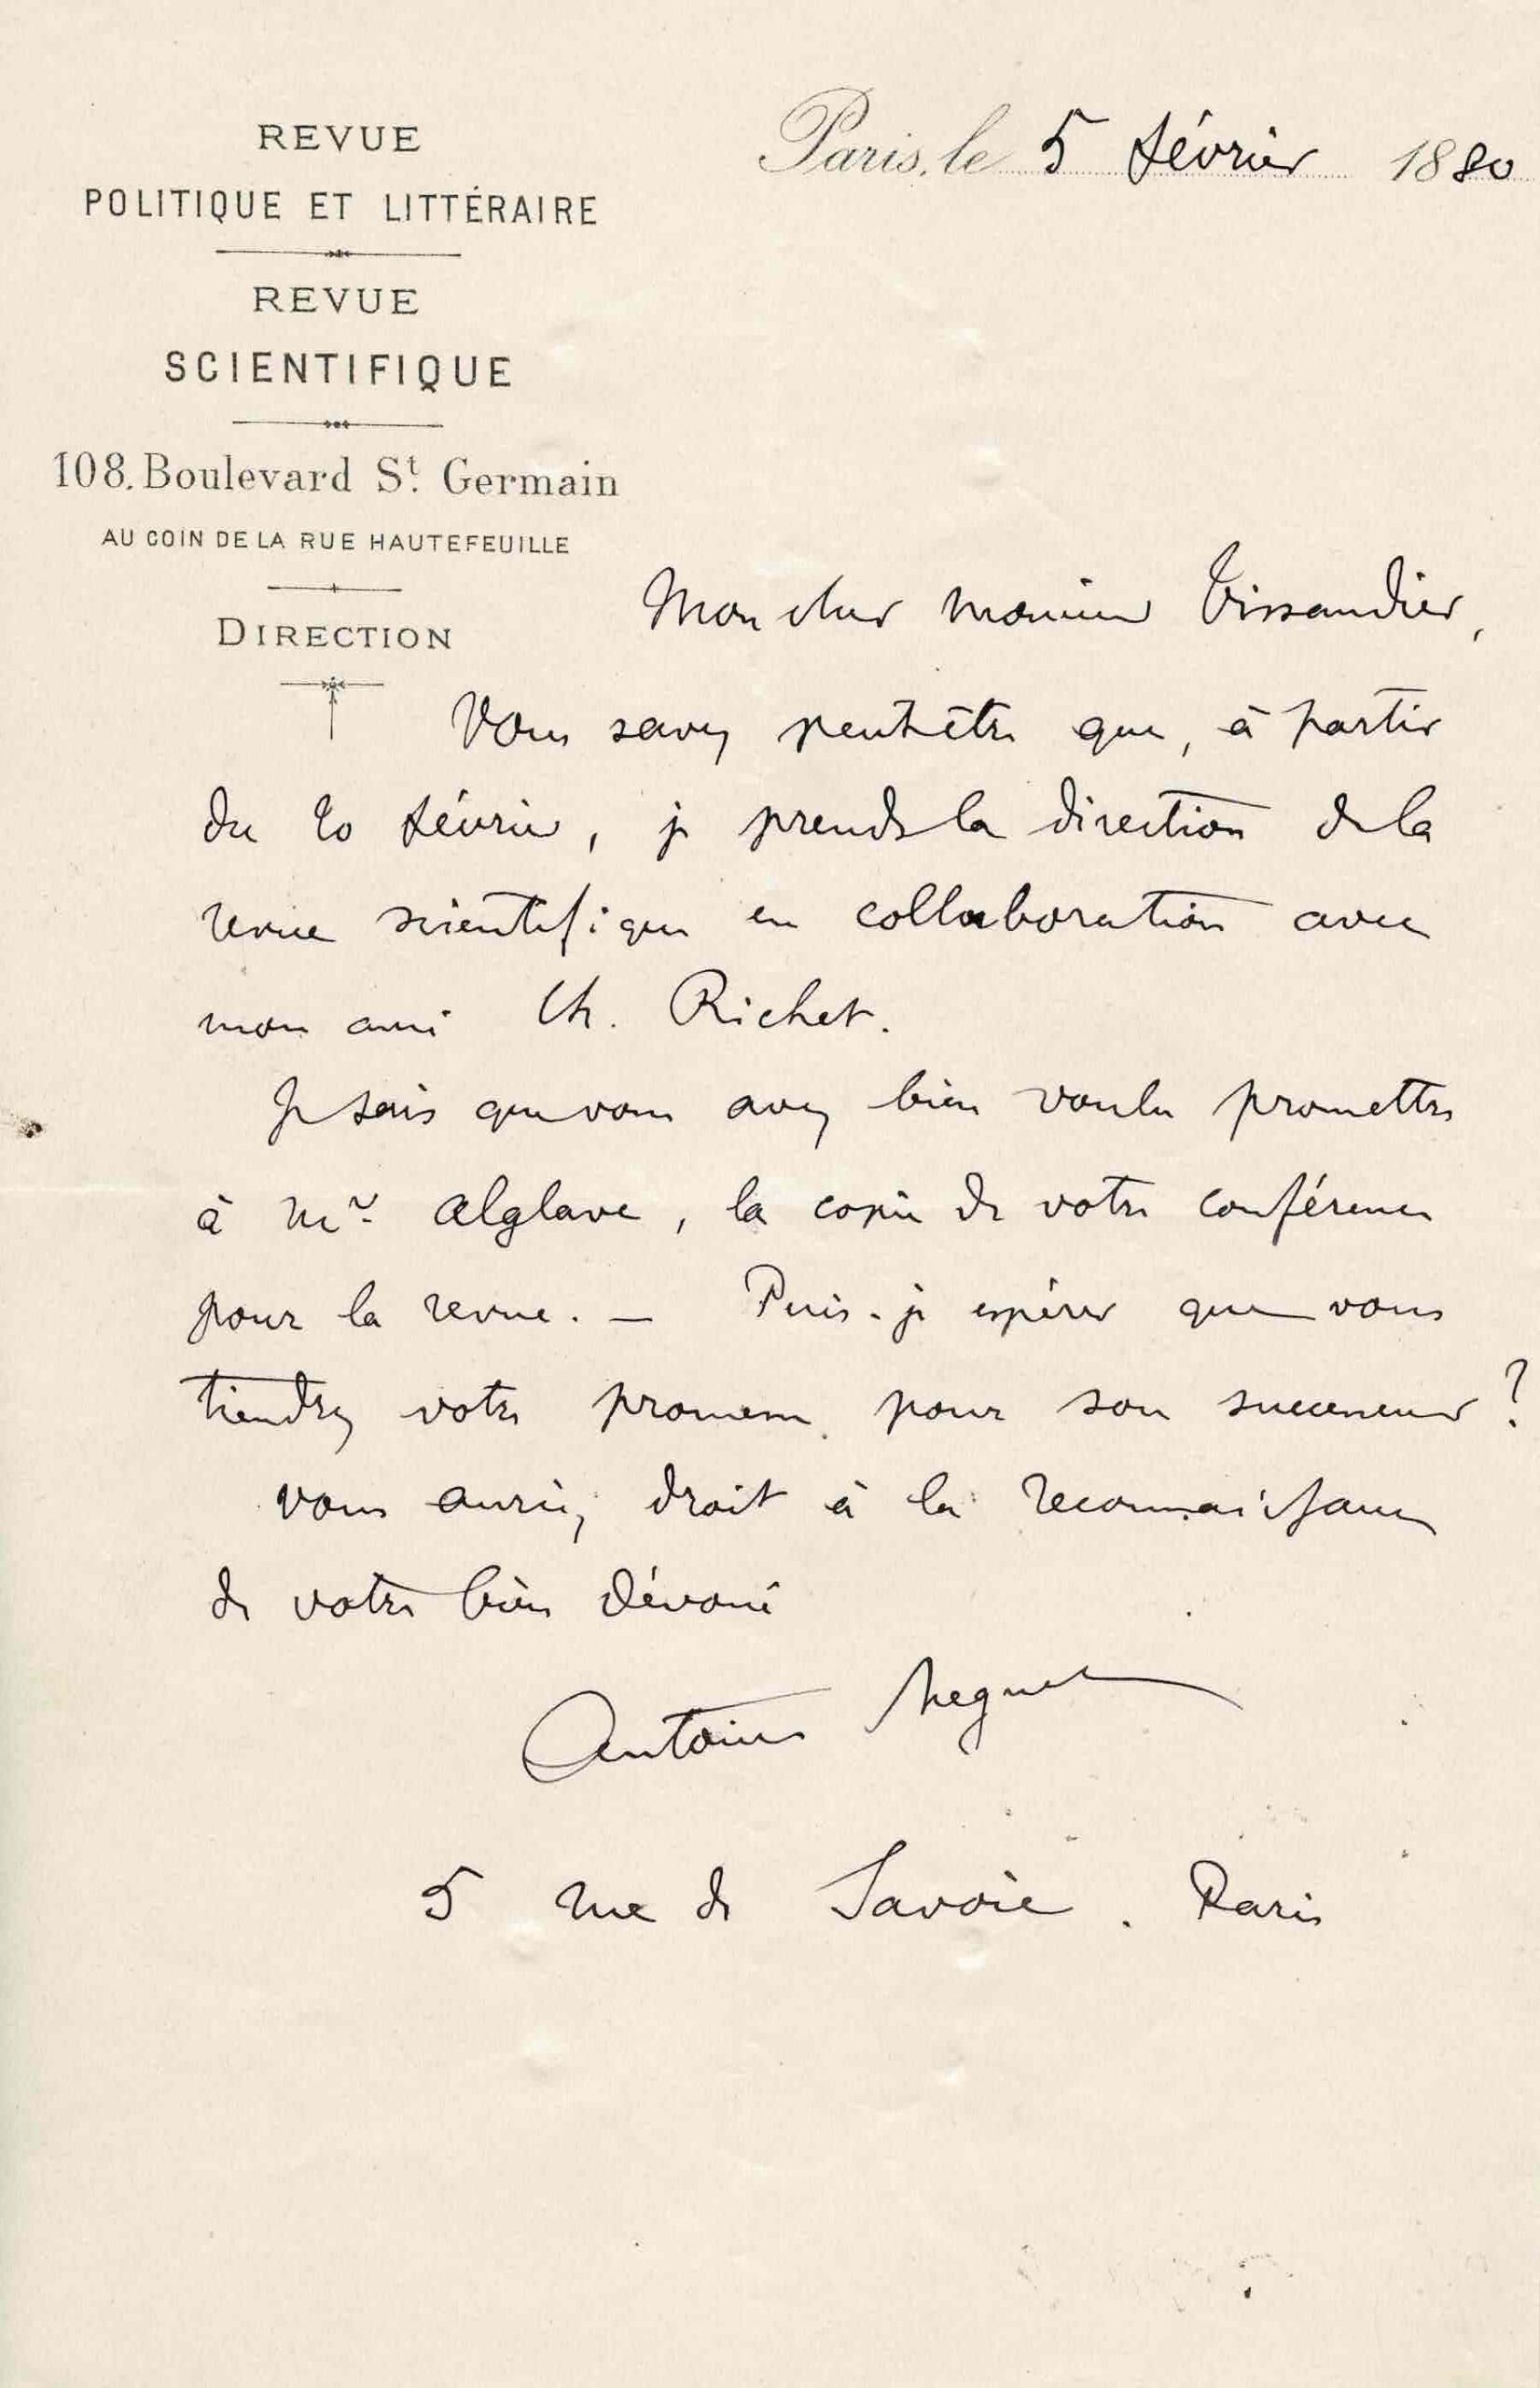 REVUE
POLITIQUE ET LITTÉRAIRE
REVUE
SCIENTIFIQUE
108. Boulevard St. Germain
AU COIN DE LA RUE HAUTEFEUILLE
DIRECTION
Paris, le 5 février 1880
Mon cher monsieur Tissandier,
Vous savez peut-être que, à partir
du 20 février, je prends la direction de la
revue scientifique en collaboration avec
mon ami Ch. Richet.
Je sais que vous avez bien voulu promettre
à Mr. Alglave, la copie de votre conférence
pour la revue. — Puis-je espérer que vous
tiendrez votre promesse pour son successeur ?
Vous auriez droit à la reconnaissance
de votre bien dévoué
Antoine Breguet
5 rue de Savoie. Paris